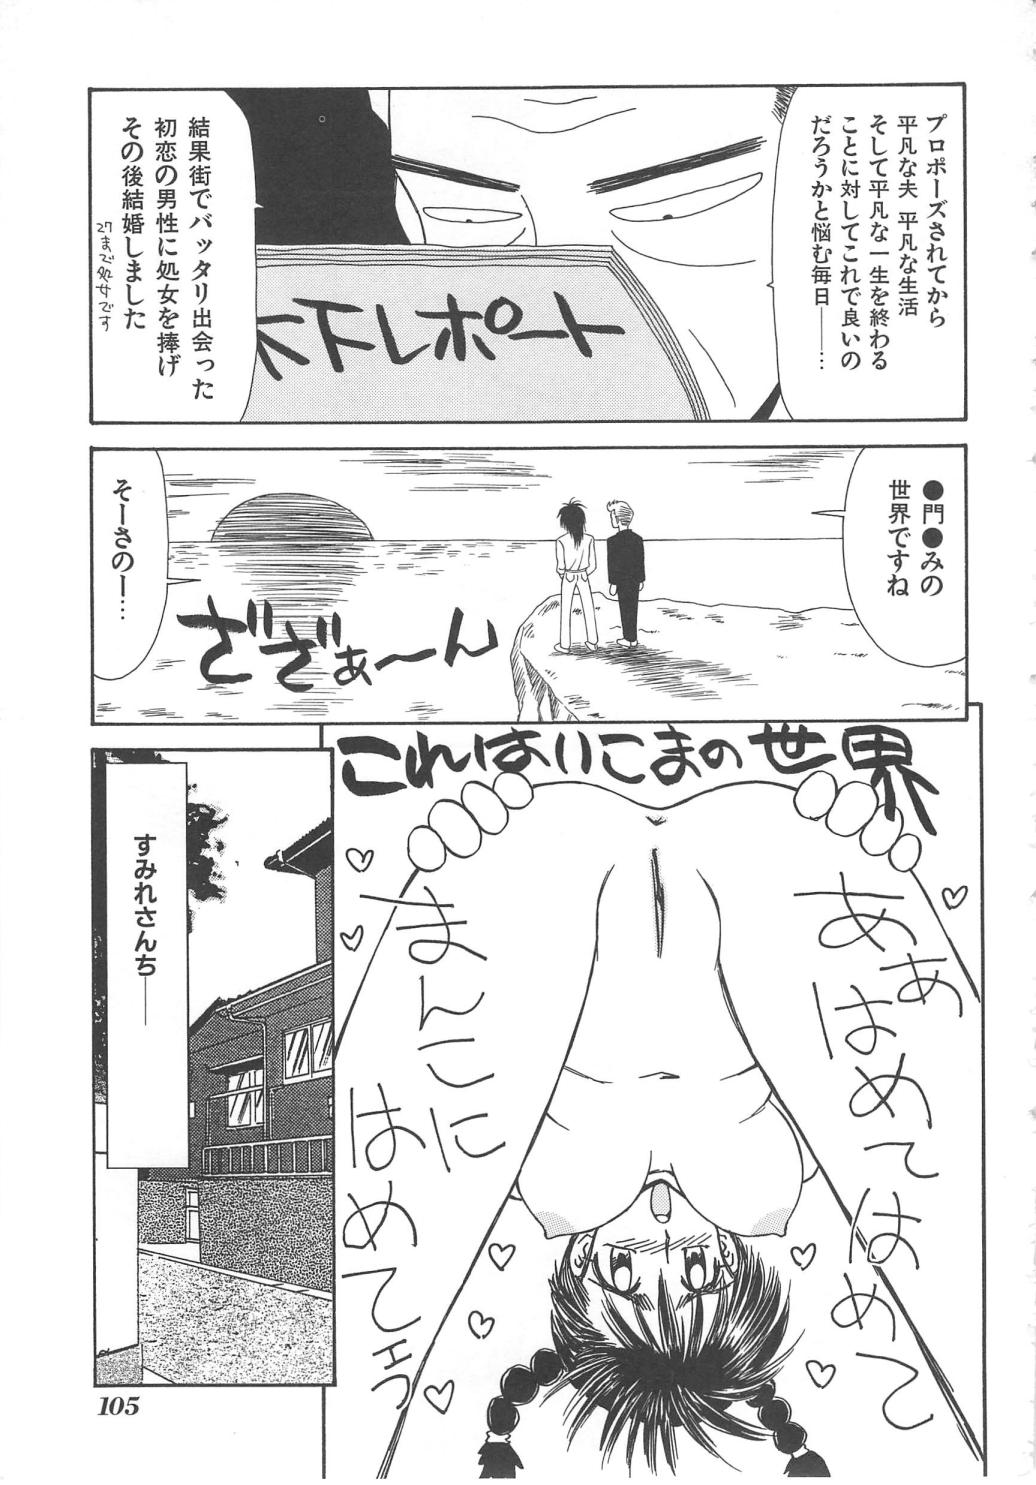 プロポーズされてから
平凡な夫 平凡な生活
そして平凡な一生を終わる
ことに対してこれで良いの
だろうかと悩む毎日――…
木下レポート
結果街でバッタリ出会った
初恋の男性に処女を捧げ
その後結婚しました
27まで処女です
●門●みの
世界ですね
ざざぁ〜ん
そーさのー…
これはいこまの世界
あぁ
はめてはめて
まんこに
はめてェっ
すみれさんち――
105